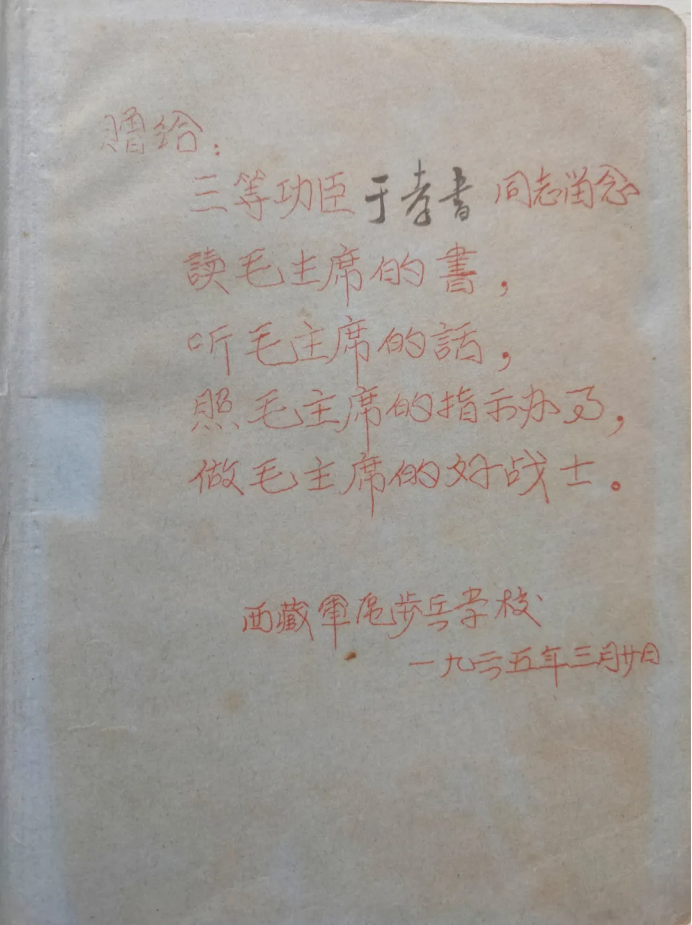 赠给：
三等功臣于孝書同志留念
讀毛主席的書，
听毛主席的話，
照毛主席的指示办事，
做毛主席的好战士。
西藏軍区步兵学校
一九六五年三月廿日